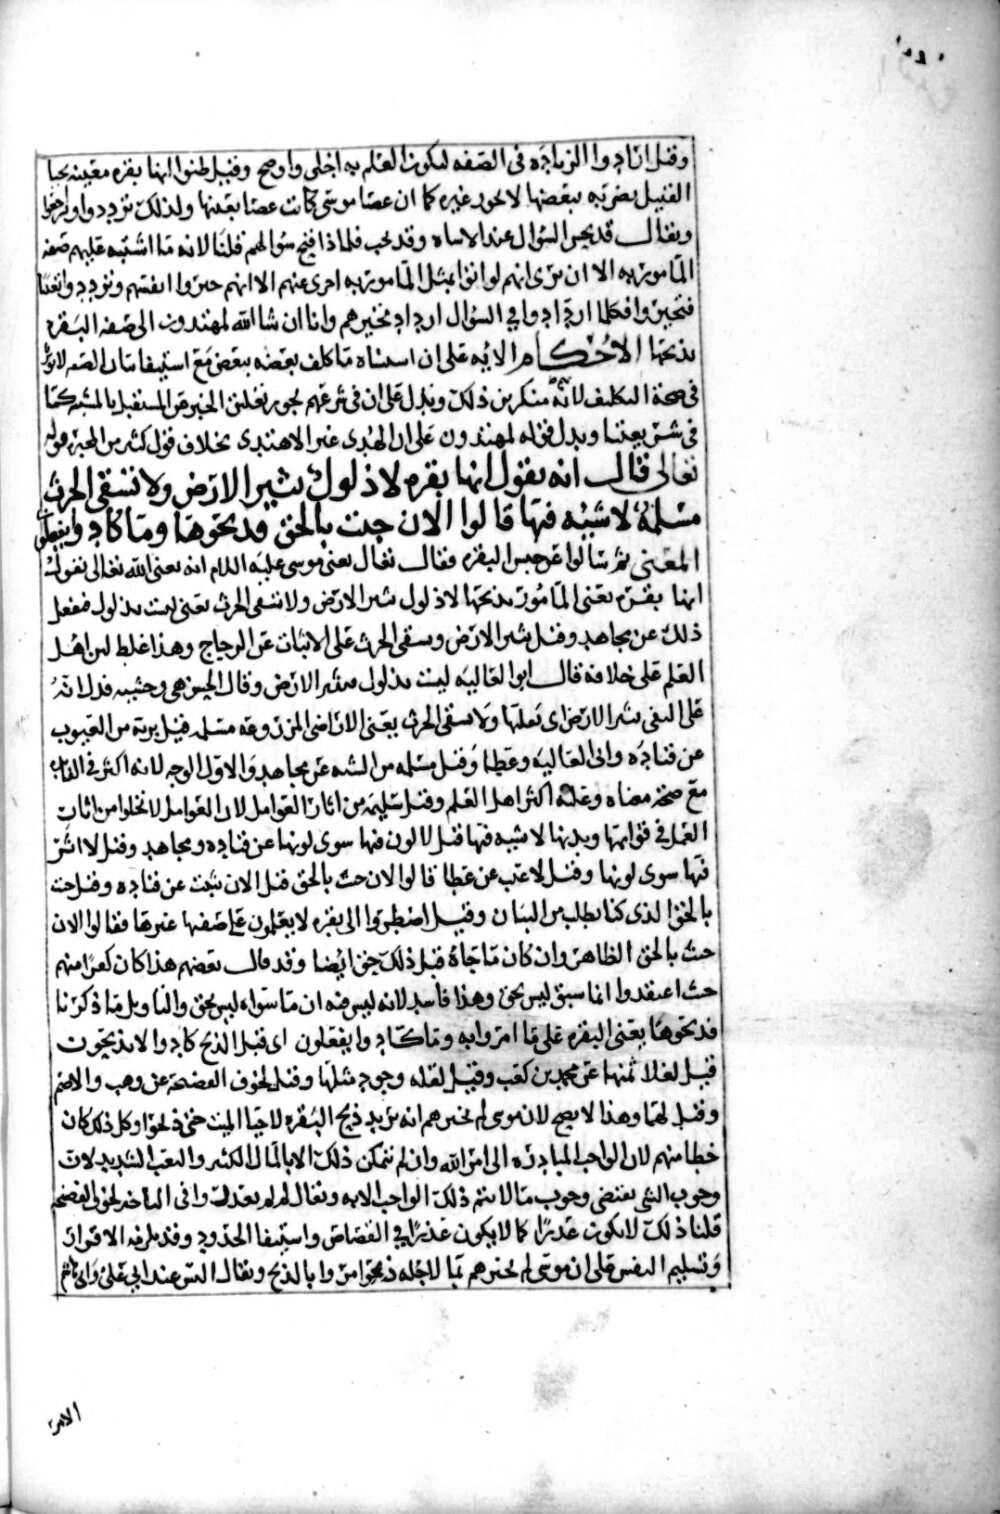 وقيل انادوا الزيادة في الصفة ليكون العلم به اجلى واوضح وقيل ظنوا انها بقرة معينة يحيا
القتيل بضربه ببعضها لا يجوز غيره كما ان عصا موسى كانت عصا بعينها ولذلك ترددوا
ويقال قد يحسن السؤال عند الاشتباه وقد يجب فلماذا قبح سؤالهم قلنا لانه ما اشتبه عليهم صفة
المأمور به الا ان ترى انهم لو اتوا بمثل المأمور به اجزى عنهم الا انهم حيروا انفسهم وترددوا تعنتا
فتحيروا فكلما ازدادوا في السؤال ازداد تخييرهم وانا ان شا الله لمهتدون الى صفة البقرة
بذبحها الاحكام الآية على ان استثناه ما كلف بعضه ببعض مع استيفا بيان الصفة لا يؤثر
في صحة التكليف لانه منكر من ذلك ويدل على ان في شرعهم يجوز تعليق الخبر عن المستقبل بالمشية كما
في شريعتنا ويدل قوله لمهتدون على ان الهدى غير الاهتدى بخلاف قول كثير من المجبرة قوله
تعالى قال انه يقول انها بقرة لا ذلول تثير الارض ولا تسقى الحرث
مسلمة لا شية فيها قالوا الان جئت بالحق فذبحوها وما كادوا يفعلون
المعنى ثم سالوا عن جنس البقرة فقال تعالى يعنى موسى عليه السلام انه يعنى الله تعالى يقول
انها بقرة يعنى المأمور بذبحها لا ذلول تثير الارض ولا تسقى الحرث يعنى ليست بذلول ففعل
ذلك عن مجاهد وقيل تثير الارض وتسقى الحرث على الاثبات عن الزجاج وهذا غلط لان اهل
العلم على خلافه قال ابو العالية ليست بذلول فتثير الارض وقال الحسن هى وحشية فدل انه
على النفى تثير الارض اى تعملها ولا تسقى الحرث يعنى الاراضى المزروعة مسلمة قيل برية من العيوب
عن قتادة وابى العالية وعطا وقيل مسلمة من الشية عن مجاهد والاول الوجه لانه اكثر في الفايدة
مع صحة معناه وعليه اكثر اهل العلم وقيل سليمة من اثار العوامل لان العوامل لا تخلوا من اثار
العمل في قوايمها وبدنها لا شية فيها قيل لا لون فيها سوى لونها عن قتادة ومجاهد وقيل لا اثر
فيها سوى لونها وقيل لا عيب عن عطا قالوا الان جئت بالحق قيل الان بينت عن قتادة وقيل جئت
بالحق الذى كنا نطلب من البيان وقيل اضطروا الى بقرة لا يعلمون على صفتها غيرها فقالوا الان
جئت بالحق الظاهر وان كان ما جاءه قبل ذلك حق ايضا وقد قال بعضهم هذا كان كفرا منهم
حيث اعتقدوا انما سبق ليس بحق وهذا فاسد لانه ليس فيه ان ما سواه ليس بحق والتاويل ما ذكرنا
فذبحوها يعنى البقرة على ما امروا به وما كادوا يفعلون اى قبل الذبح كادوا لا يذبحون
قيل لغلا ثمنها عن محمد بن كعب وقيل لقلة وجود مثلها وقيل لخوف الفضيحة عن وهب والاصم
وقيل لهما وهذا لا يصح لان موسى لم يخبرهم انه يريد ذبح البقرة لاحيا الميت حتى ذبحوا وكل ذلك كان
خطا منهم لان الواجب المبادرة الى امر الله وان لم يتمكن ذلك الا بالمال الكثير والتعب الشديد لان
وجوب الشى يقتضى وجوب ما لا يتم ذلك الواجب الا به ويقال لم لم يعذروا في التأخير لخوف الفضيحة
قلنا ذلك لا يكون عذرا كما لا يكون عذرا في القصاص واستيفا الحدود وقد يلزمه الاقرار
وتسليم النفس على ان موسى لم يخبرهم بما لاجله ذبحوا امروا بالذبح ويقال اليس عند ابي على وابي هاشم
الامر